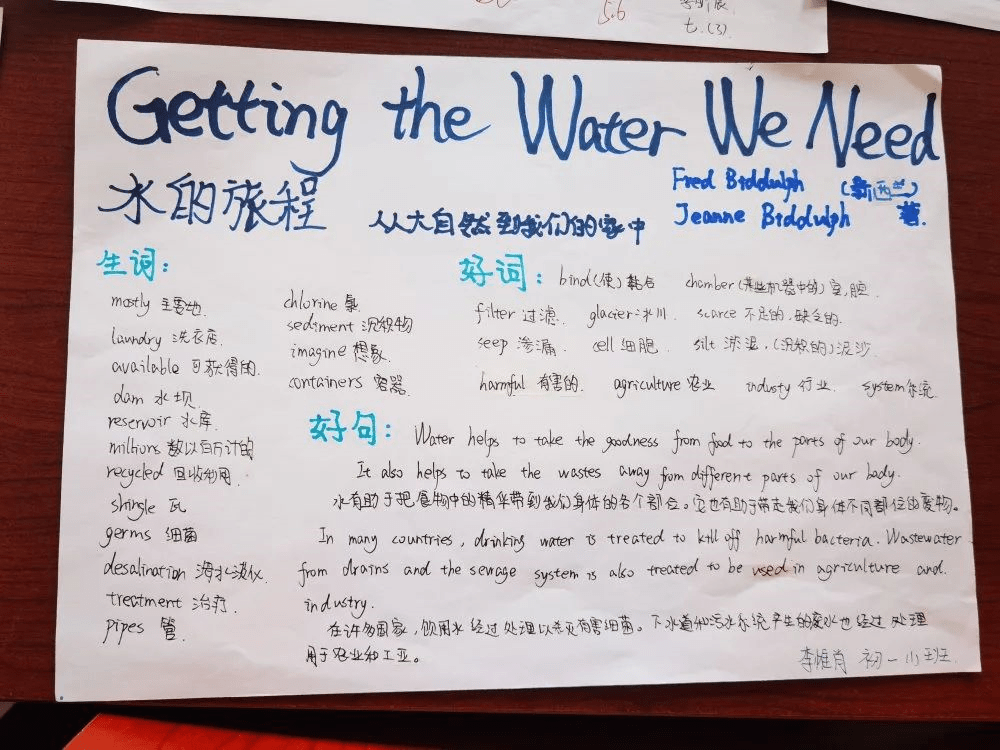 5.6
七.(3)
Getting the Water We Need
水的旅程 从大自然到我们的家中
Fred Biddulph (新西兰)
Jeanne Biddulph 著.
生词:
mostly 主要地.
laundry 洗衣店
available 可获得的.
dam 水坝
reservoir 水库.
millions 数以百万计的
recycled 回收利用.
shingle 瓦
germs 细菌
desalination 海水淡化.
treatment 治疗.
pipes 管
chlorine 氯
sediment 沉积物
imagine 想象
containers 容器
好词: bind(使)黏合 chamber(某些机器中的)室,腔.
filter 过滤. glacier 冰川 scarce 不足的,缺乏的.
seep 渗漏. cell 细胞. silt 淤泥,(沉积的)泥沙
harmful 有害的. agriculture 农业 industy 行业. system 系统.
好句: Water helps to take the goodness from food to the parts of our body.
It also helps to take the wastes away from different parts of our body.
水有助于把食物中的精华带到我们身体的各个部位。它也有助于带走我们身体不同部位的废物。
In many countries, drinking water is treated to kill off harmful bacteria. Wastewater
from drains and the sewage system is also treated to be used in agriculture and
industry.
在许多国家,饮用水经过处理以杀灭有害细菌。下水道和污水系统产生的废水也经过处理
用于农业和工业。
李惟肖 初一小班.